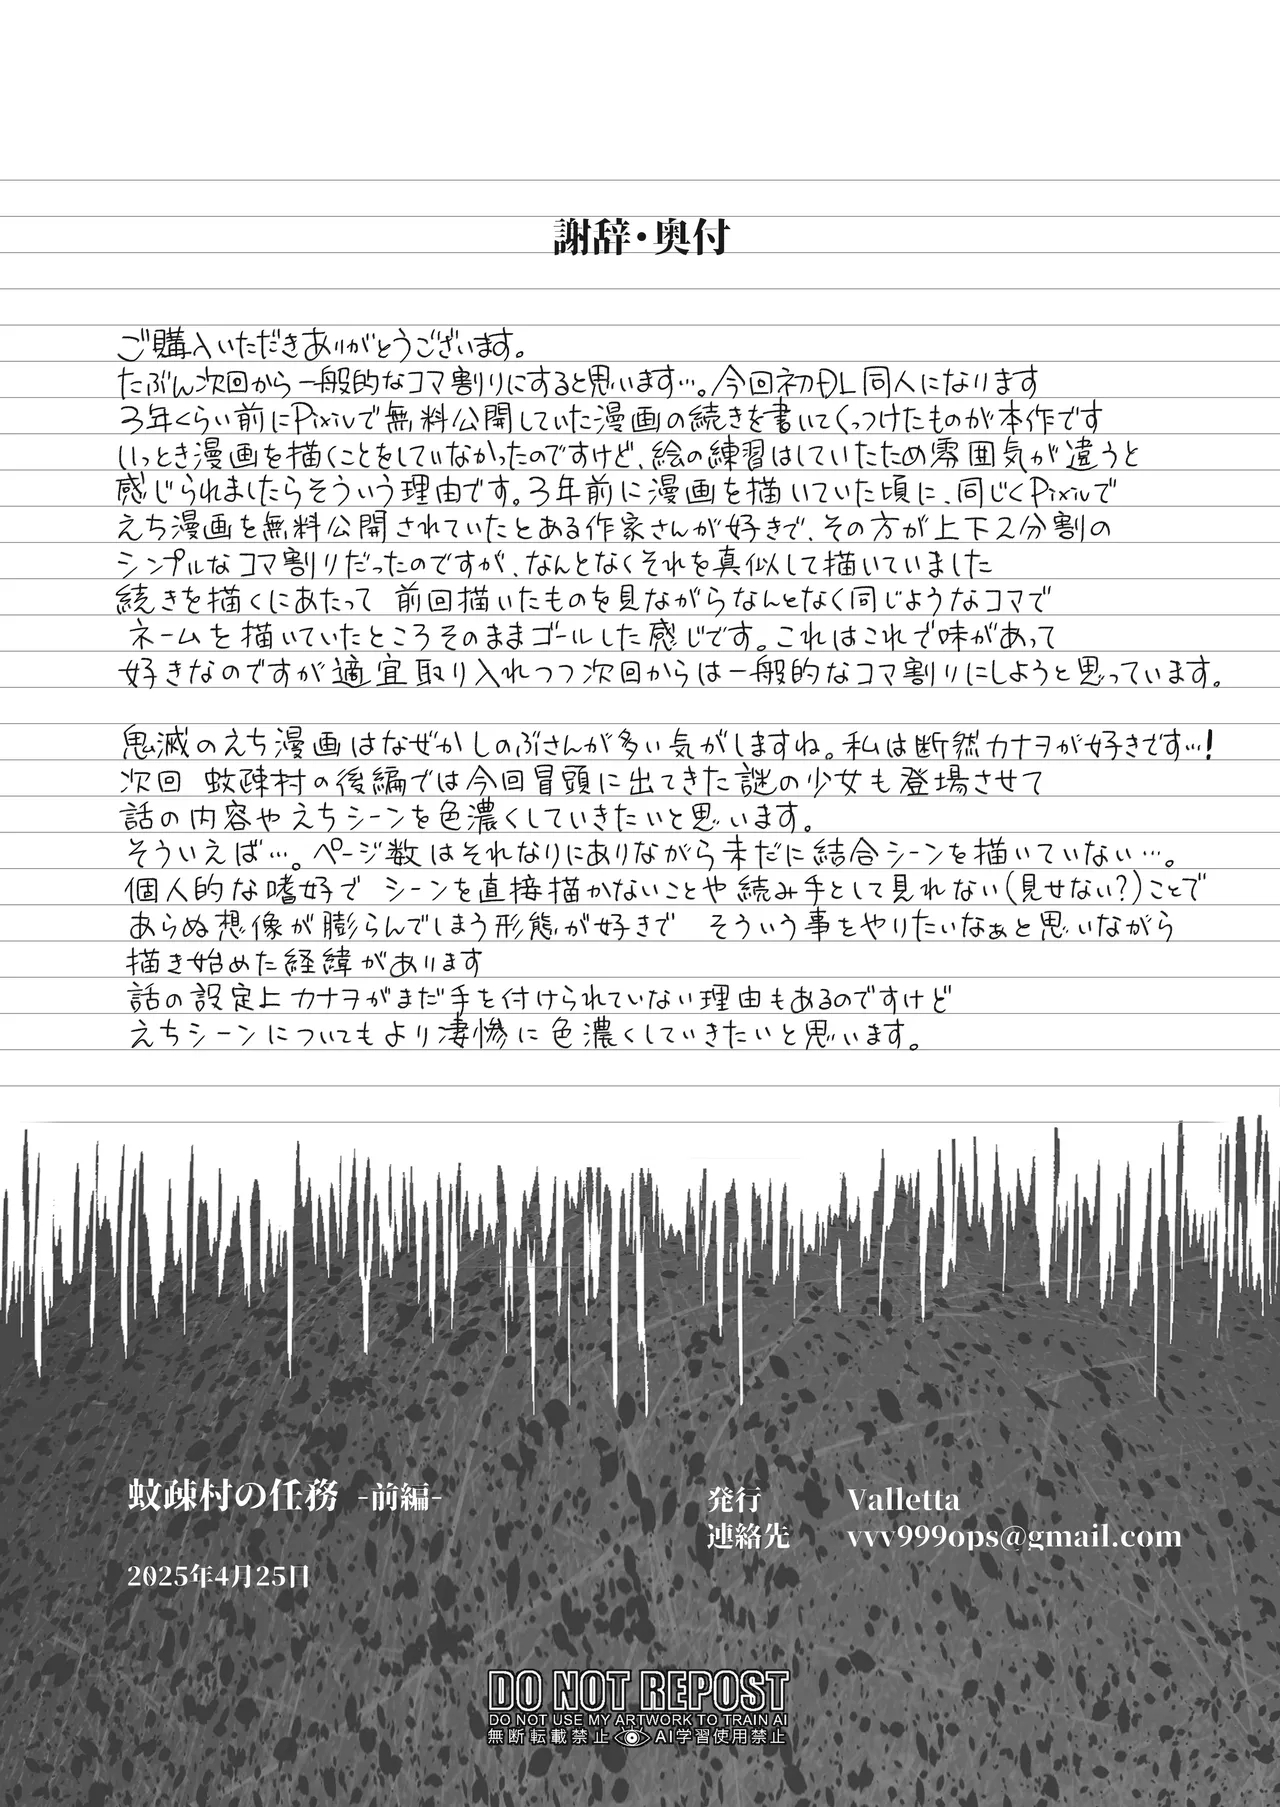 謝辞・奥付
ご購入いただきありがとうございます。
たぶん次回から一般的なコマ割りにすると思います…。今回初DL同人になります
3年くらい前にPixivで無料公開していた漫画の続きを書いてくっつけたものが本作です
いっとき漫画を描くことをしていなかったのですけど、絵の練習はしていたため雰囲気が違うと
感じられましたらそういう理由です。3年前に漫画を描いていた頃に、同じくPixivで
えち漫画を無料公開されていたとある作家さんが好きで、その方が上下2分割の
シンプルなコマ割りだったのですが、なんとなくそれを真似して描いていました
続きを描くにあたって 前回描いたものを見ながらなんとなく同じようなコマで
ネームを描いていたところそのままゴールした感じです。これはこれで味があって
好きなのですが適宜取り入れつつ次回からは一般的なコマ割りにしようと思っています。
鬼滅のえち漫画はなぜかしのぶさんが多い気がしますね。私は断然カナヲが好きです…!
次回 蚊疎村の後編では今回冒頭に出てきた謎の少女も登場させて
話の内容やえちシーンを色濃くしていきたいと思います。
そういえば…。ページ数はそれなりにありながら未だに結合シーンを描いていない…。
個人的な嗜好で シーンを直接描かないことや続み手として見れない(見せない?)ことで
あらぬ想像が膨らんでしまう形態が好きで そういう事をやりたいなぁと思いながら
描き始めた経緯があります
話の設定上カナヲがまだ手を付けられていない理由もあるのですけど
えちシーンについてもより凄惨に色濃くしていきたいと思います。
蚊疎村の任務 -前編-
2025年4月25日
発行 Valletta
連絡先 vvv999ops@gmail.com
DO NOT REPOST
DO NOT USE MY ARTWORK TO TRAIN AI
無断転載禁止 AI学習使用禁止